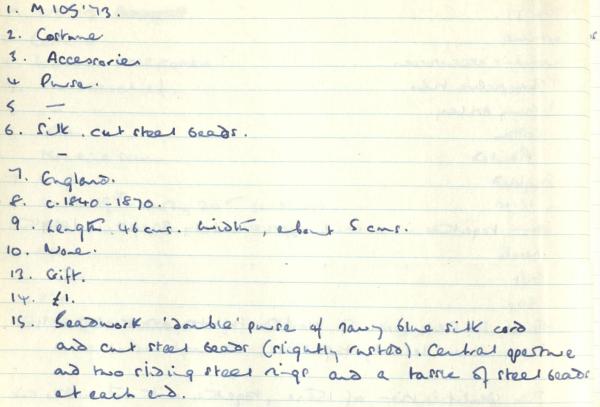 1. M105'73.
2. Costume
3. Accessories
4 Purse.
5 —
6. Silk. cut steel beads.
—
7. England.
8. c.1840-1870.
9. Length, 46 cms. Width, about 5 cms.
10. None.
13. Gift.
14. £1.
15. Beadwork 'double' purse of navy blue silk cord
and cut steel beads (slightly rusted). Central aperture
and two sliding steel rings and a tassle of steel beads
at each end.